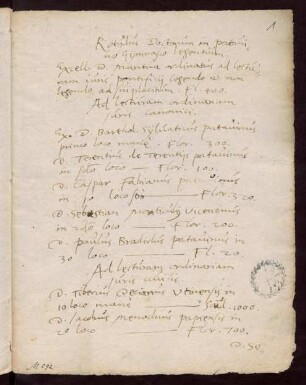 1
Rotulus Doctorum in patavi-
no Gymnasio legentium.
Excell. D. Mantua ordinatus ad lectu-
ram iuris pontificij legendo et non
legendo, ad sui placitum. Fl. 800.
Ad lecturam ordinariam
iuris canonici.
Ex. D. Barthol. Sylvaticus patavinus
primo loco mane. Flor. 300.
D. Terentius de Terentijs patavinus
in loco. Flor. 100.
D. Caspar Fabianus patavinus
in po loco Flor. 320.
D. Sebastian Vicentinus
in 2do loco Flor. 200.
D. Paulus patavinus in
30 loco Fl. 20.
Ad lecturam ordinariam
iuris civilis.
D. Tiberius Decianus Utinensis in
10 loco mane 1000.
D. Iacobus Menochius papiensis in
20 loco Flor. 700.
D. Se.